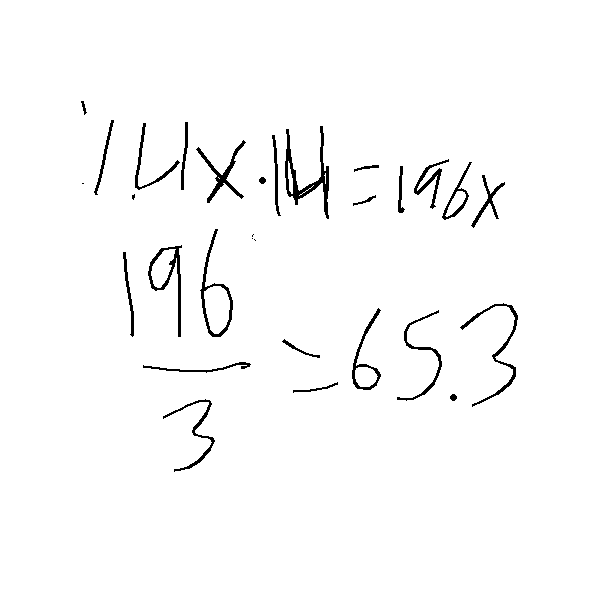 1.4x.14=.196x
196/3=65.3